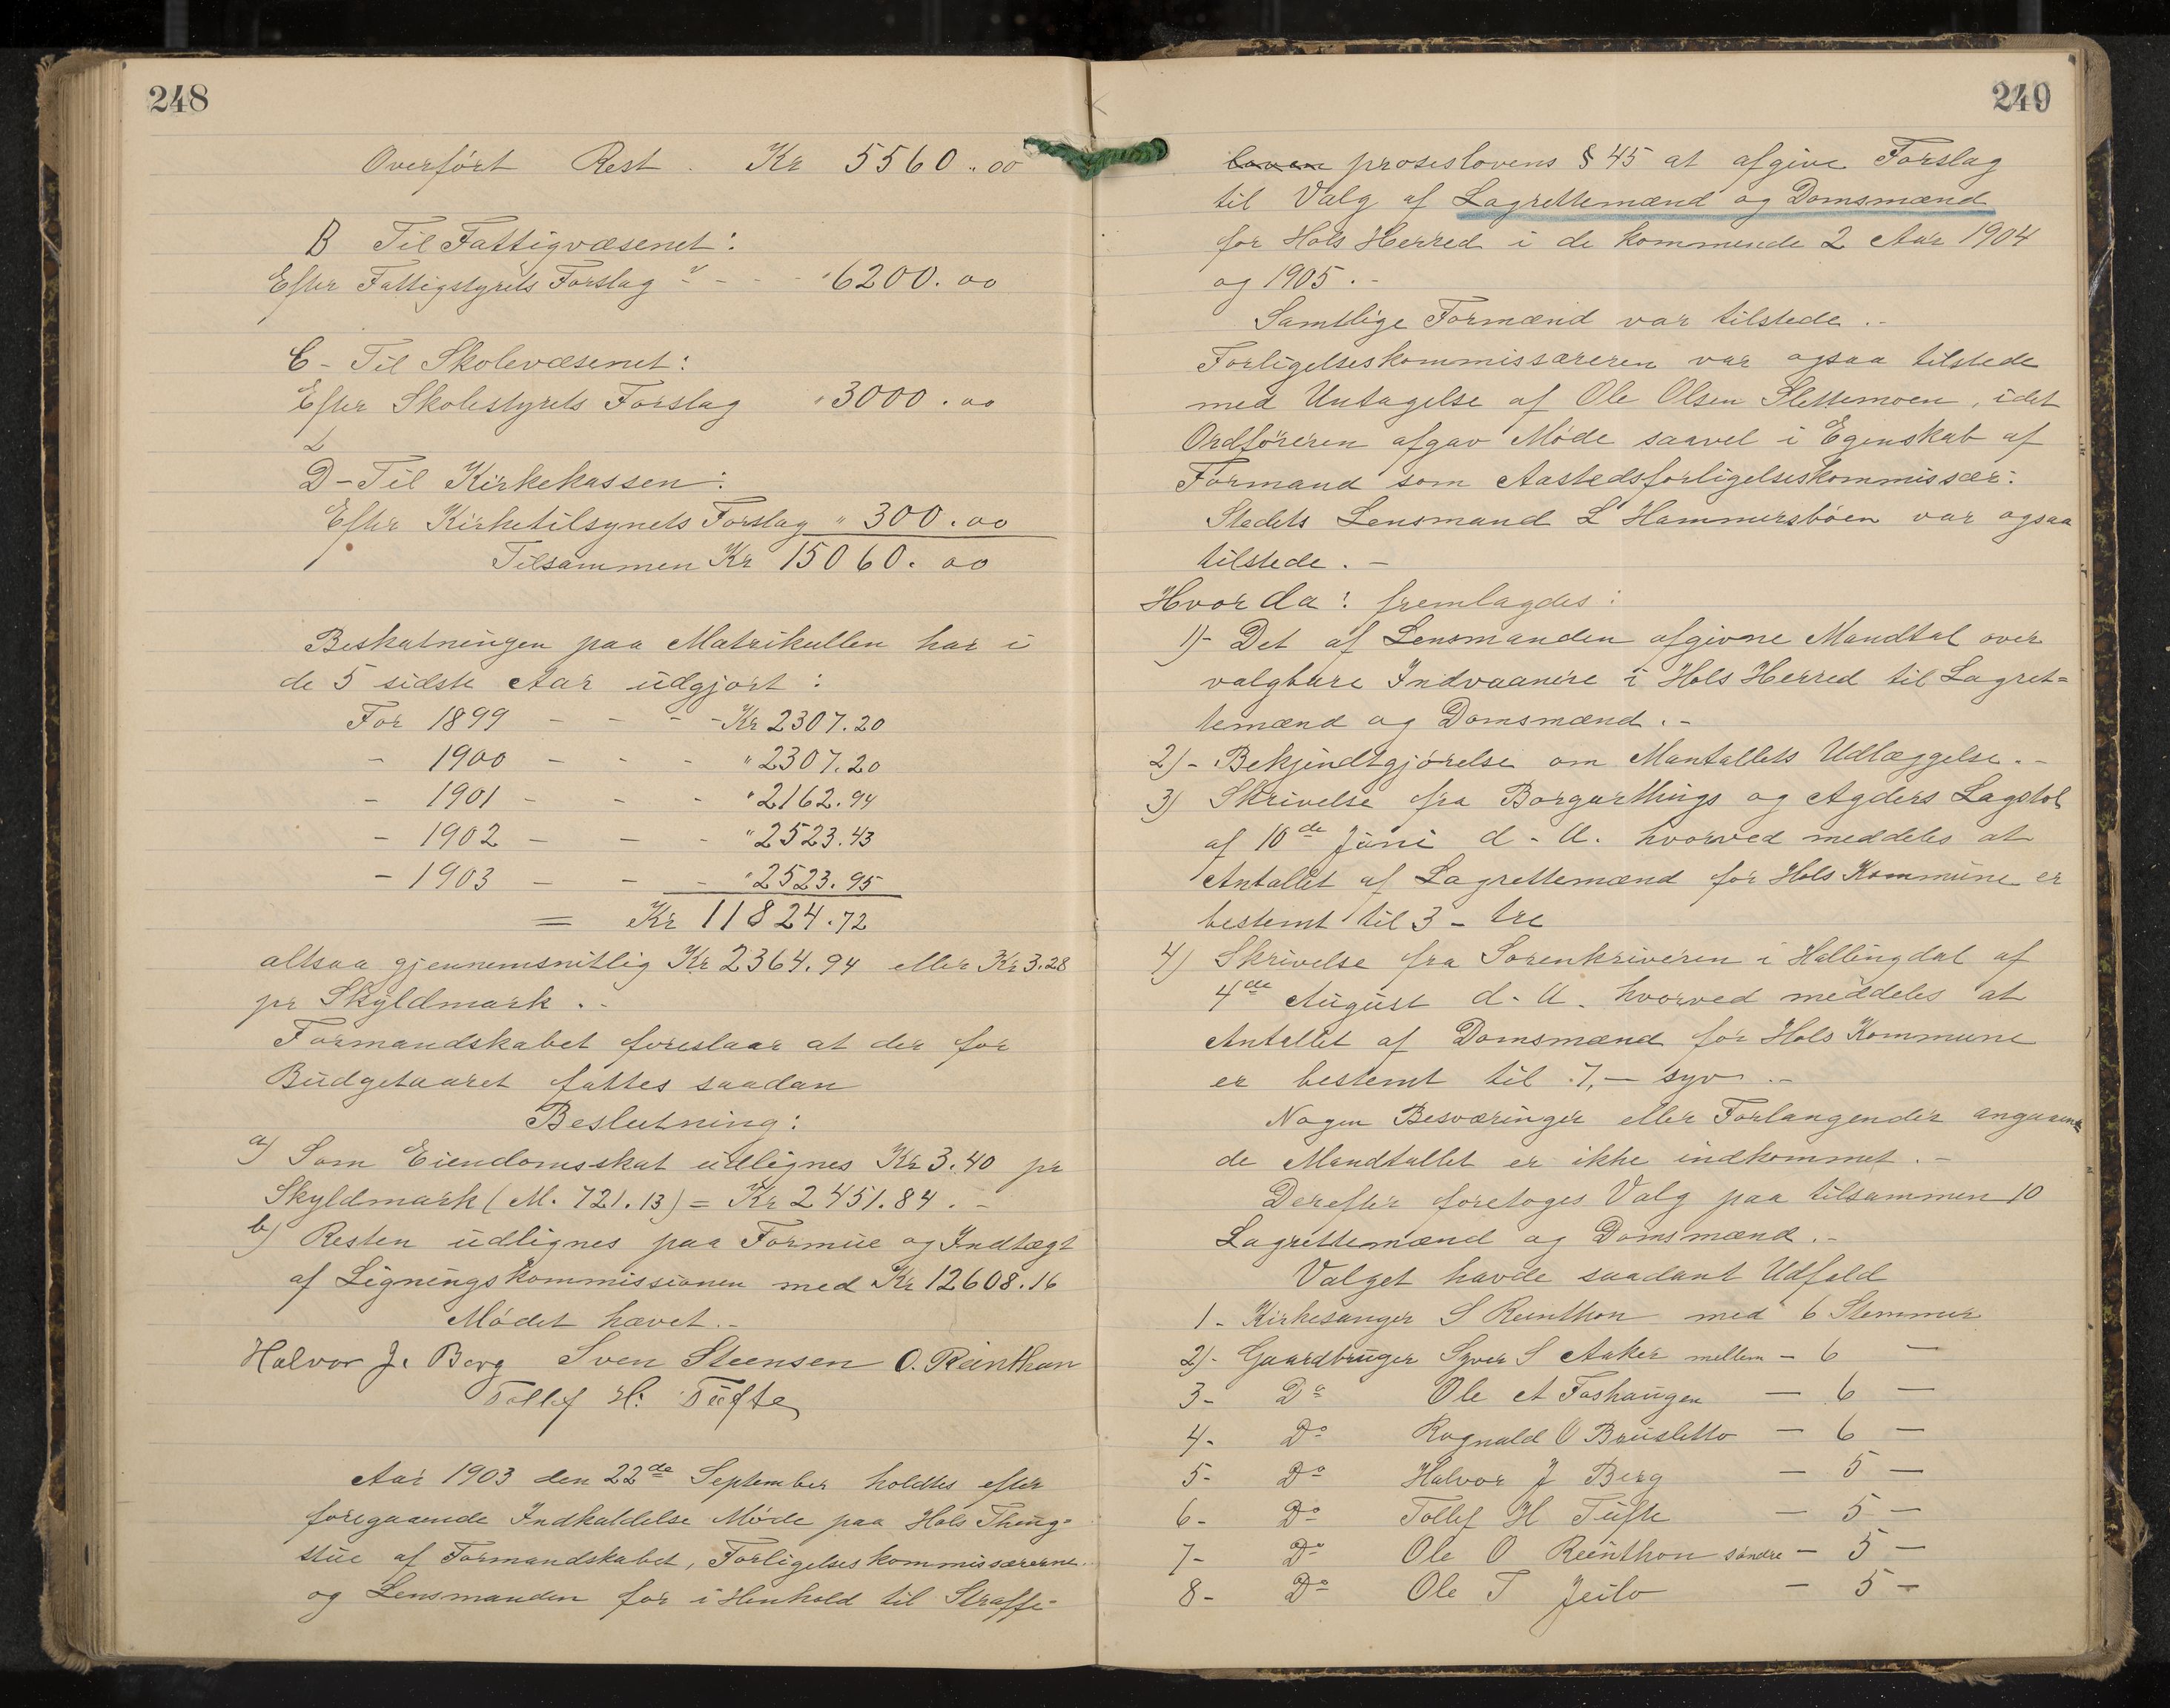 248
Overført Rest. Kr 5560.00
B Til Fattigvæsenet:
Efter Fattigstyrets Forslag " - - " 6200.00
C - Til Skolevæsenet:
Efter Skolestyrets Forslag " 3000.00
D - Til Kirkekassen:
Efter Kirketilsynets Forslag " 300.00
Tilsammen Kr 15060.00
Beskatningen paa Matrikullen har i
de 5 sidste Aar udgjort:
For 1899 - - - Kr 2307.20
- 1900 - - - " 2307.20
- 1901 - - - " 2162.94
- 1902 - - - " 2523.43
- 1903 - - - " 2523.95
= Kr 11824.72
altsaa gjennemsnitlig Kr 2364.94 eller Kr 3.28
pr Skyldmark. -
Formandskabet foreslaar at der for
Budgetaaret fattes saadan
Beslutning:
a) Som Eiendomsskat udlignes Kr 3.40 pr
Skyldmark (M. 721.13) = Kr 2451.84. -
b) Resten udlignes paa Formue og Indtægt
af Ligningskommissionen med Kr 12608.16
Mødet hævet. -
Halvor J. Berg Sven Steensen O. Reinthon
Tollef H. Tufte
Aar 1903 den 22de September holdtes efter
foregaaende Indkaldelse Møde paa Hols Thing-
stue af Formandskabet, Forligelseskommissærerne
og Lensmanden for i Henhold til Straffe-
249
loven proseslovens § 45 at afgive Forslag
til Valg af Lagrettemænd og Domsmænd
for Hols Herred i de kommende 2 Aar 1904
og 1905. -
Samtlige Formænd var tilstede. -
Forligelseskommissæreren var ogsaa tilstede
med Untagelse af Ole Olsen Slettemoen, idet
Ordføreren afgav Møde saavel i Egenskab af
Formand som Aastedsforligelseskommissær.
Stedets Lensmand L Hammersbøen var ogsaa
tilstede. -
Hvor da: fremlagdes:
1) - Det af Lensmanden afgivne Mandtal over
valgbare Indvaanere i Hols Herred til Lagret=
temænd og Domsmænd. -
2) - Bekjendtgjørelse om Mantallets Udlæggelse. -
3) Skrivelse fra Borgarthings og Agders Lagstol
af 10de Juni d. A. hvorved meddeles at
Antallet af Lagrettemænd for Hols Kommune er
bestemt til 3 - tre
4) Skrivelse fra Sorenkriveren i Hallingdal af
4de August d. A. hvorved meddeles at
Antallet af Domsmænd for Hols Kommune
er bestemt til 7, - syv. -
Nogen Besværinger eller Forlangender angaaen
de Mandtallet er ikke indkommet. -
Derefter foretoges Valg paa tilsammen 10
Lagrettemænd og Domsmænd. -
Valget havde saadant Udfald
1 - Kirkesanger S Reinthon med 6 Stemmer
2) - Gaardbruger Syver S Aaker mellem - 6 -
3 - Do Ole A Foshaugen - 6 -
4 - Do Ragnald O Brusletto - 6 -
5 - Do Halvor J Berg - 5 -
6 - Do Tollef H Tufte - 5 -
7 - Do Ole O Reinthon søndre - 5 -
8 - Do Ole T Jeilo - 5 -